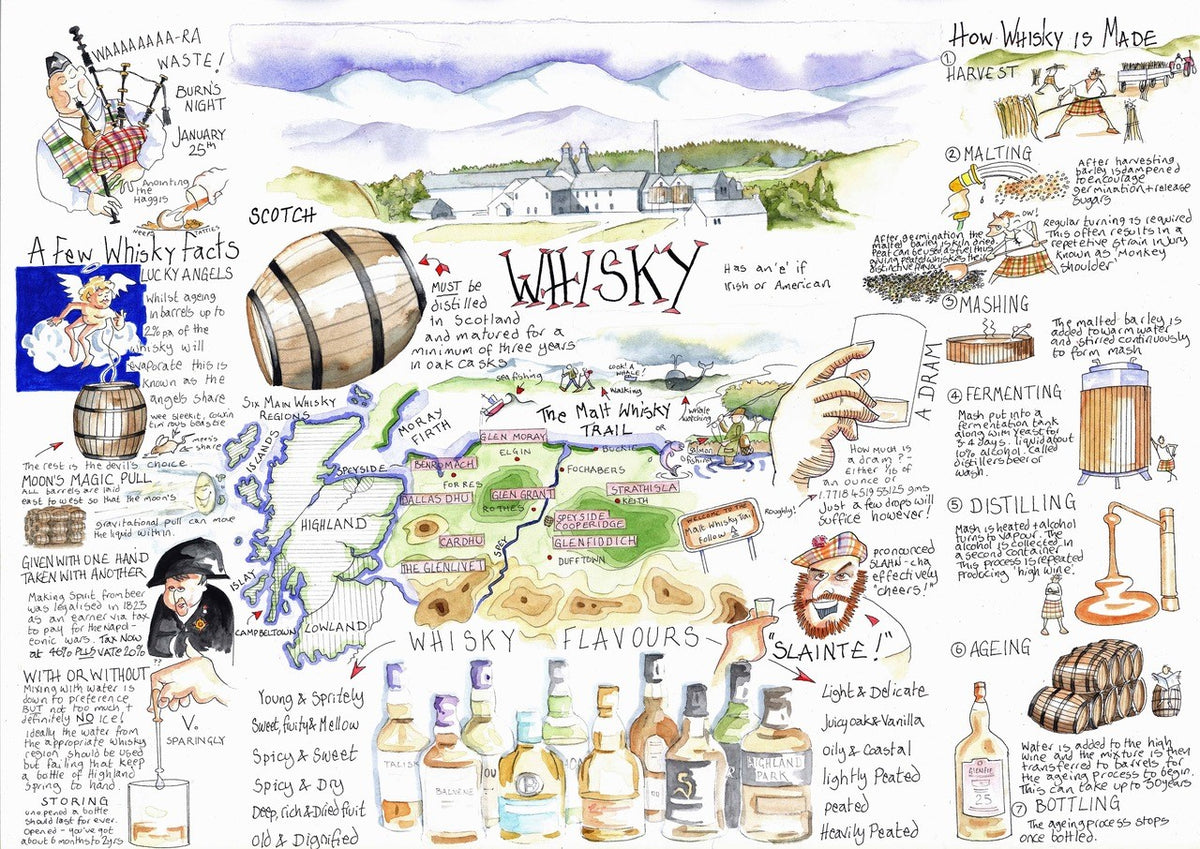 WAAAAAAAA-RA
WASTE!
BURN'S
NIGHT
JANUARY
25th
Anointing
the
Haggis
NEEPS
TATTIES
A Few Whisky Facts
LUCKY ANGELS
Whilst ageing
in barrels up to
2% pa of the
whisky will
evaporate this is
known as the
angels share
wee sleekit, cowrin
tim'rous beastie
mees's
share
The rest is the devil's choice
MOON'S MAGIC PULL
All barrels are laid
east to west so that the moon's
gravitational pull can move
the liquid within.
GIVEN WITH ONE HAND
TAKEN WITH ANOTHER
Making Spirit from beer
was legalised in 1823
as an earner via tax
to pay for the Napol-
eonic wars. Tax Now
at 46% PLUS VATE 20%
WITH OR WITHOUT
??
Mixing with water is
down to preference
BUT not too much +
definitely NO ice!
ideally the water from
the appropriate whisky
region should be used
but failing that keep
a bottle of Highland
Spring to hand
V.
SPARINGLY
STORING
unopened a bottle
should last for ever.
Opened - you've got
about 6 months to 2yrs
SCOTCH
WHISKY
Has an 'e' if
Irish or American
MUST be
distilled
in Scotland
and matured for a
minimum of three years
in oak casks
SIX MAIN WHISKY
REGIONS
ISLANDS
SPEYSIDE
HIGHLAND
ISLAY
CAMPBELTOWN
LOWLAND
MORAY
FIRTH
sea fishing
LOOK! A
WHALE!
Walking
The Malt Whisky
TRAIL
OR
whale
watching
salmon
fishing
GLEN MORAY
ELGIN
BUCKIE
FOCHABERS
BENROMACH
FORRES
DALLAS DHU
GLEN GRANT
ROTHES
STRATHISLA
KEITH
SPEYSIDE
COOPERIDGE
CARDHU
GLENFIDDICH
DUFFTOWN
THE GLENLIVET
SPEY
WELCOME TO THE
Malt Whisky Trail
Follow
A DRAM
HOW MUCH IS
a dram??
Either 1/16 of
an ounce or
1.7718451955125 gms
Roughly!
Just a few drops will
Suffice however!
pronounced
SLAHN-cha
effectively
"cheers!"
"SLAINTE!"
WHISKY FLAVOURS
Young & Spritely
Sweet, fruity & Mellow
Spicy & Sweet
Spicy & Dry
Deep, rich & Dried fruit
Old & Dignified
Light & Delicate
Juicy oak & Vanilla
Oily & Coastal
lightly Peated
peated
Heavily Peated
TALISK
BALVENE
HIGHLAND
PARK
How Whisky is Made
1
HARVEST
2 MALTING
After harvesting
barley is dampened
to encourage
germination + release
sugars
OW!
Regular turning is required
This often results in a
repetetive strain injury
known as 'monkey
shoulder'
After germination the
malted barley is kiln dried.
Peat can be used as fuel thus
giving peated whiskies their
distinctive flavour
3
MASHING
The malted barley is
added to warm water
and stirred continuously
to form mash
4 FERMENTING
Mash put into a
fermentation tank
along with yeast for
2-4 days. liquid about
10% alcohol. Called
distillers beer or
wash.
5 DISTILLING
Mash is heated + alcohol
turns to vapour. The
alcohol is collected in
a second container
This process is repeated
producing 'high wine'.
6 AGEING
Water is added to the high
wine and the mixture is then
transferred to barrels for
the ageing process to begin.
This can take up to 50 years
7 BOTTLING
The ageing process stops
once bottled.
25